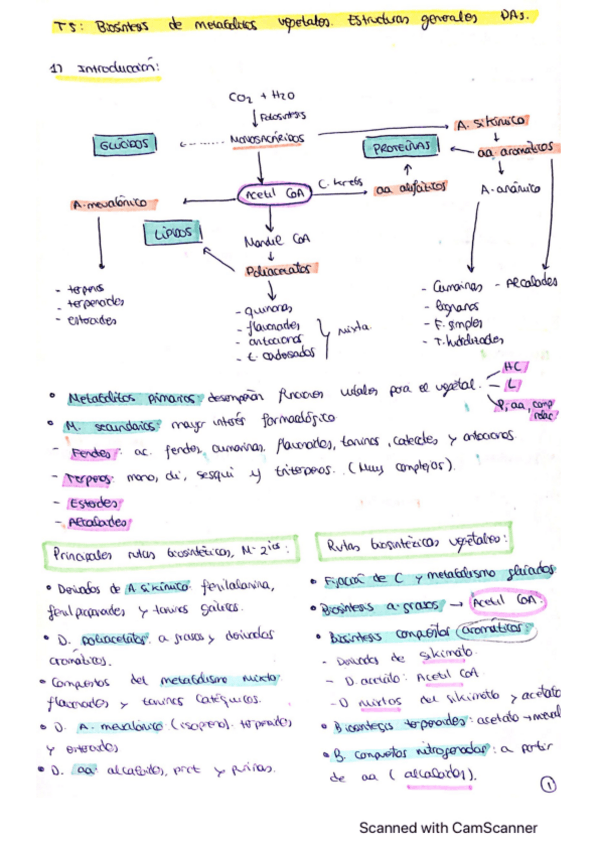 T5: Biosíntesis de metabolitos vegetales. Estructuras generales PAs.
1) Introducción:
CO2 + H2O
Fotosíntesis
GLÚCIDOS
MONOSACÁRIDOS
A. sikímico
PROTEÍNAS
aa aromáticos
Acetil CoA
C. Krebs
aa alifáticos
A. mevalónico
LÍPIDOS
Malonil CoA
Poliacetatos
- terpenos
- terpenoides
- esteroides
- quinonas
- flavonoides
- antocianos
- t. condensados
mixta
- Cumarinas
- lignanos
- F. simples
- T. hidrolizables
- Alcaloides
• Metabolitos primarios: desempeñan funciones vitales para el vegetal.
HC
L
P, aa, comp relac
• M. secundarios: mayor interés farmacológico
- Fenoles: ac. fenoles, cumarinas, flavonoides, taninos, y antocianos
- Terpenos: mono, di, sesqui y triterpenos. (Muy complejos).
- Esteroides
- Alcaloides
Principales rutas biosintéticas, M. 2ios:
• Derivados de A sikímico: fenilalanina,
fenilpropanoides y taninos gálicos.
• D. poliacetatos: a grasos y derivados
aromáticos.
• Compuestos del metabolismo mixto:
flavonoides y taninos catéquicos.
• D. A. mevalónico (isopreno): terpenoides
y esteroides
• D. aa: alcaloides, prot y purinas.
Rutas biosintéticas vegetales:
• Fijación de C y metabolismo glúcidos
• Biosíntesis a. grasos → Acetil CoA.
• Biosíntesis compuestos aromáticos:
- Derivados de sikimato
- D. acetato: Acetil CoA
- D mixtos del sikimato y acetato
• Biosíntesis terpenoides: acetato → meval
• B. compuestos nitrogenados: a partir
de aa (alcaloides).
1
Scanned with CamScanner